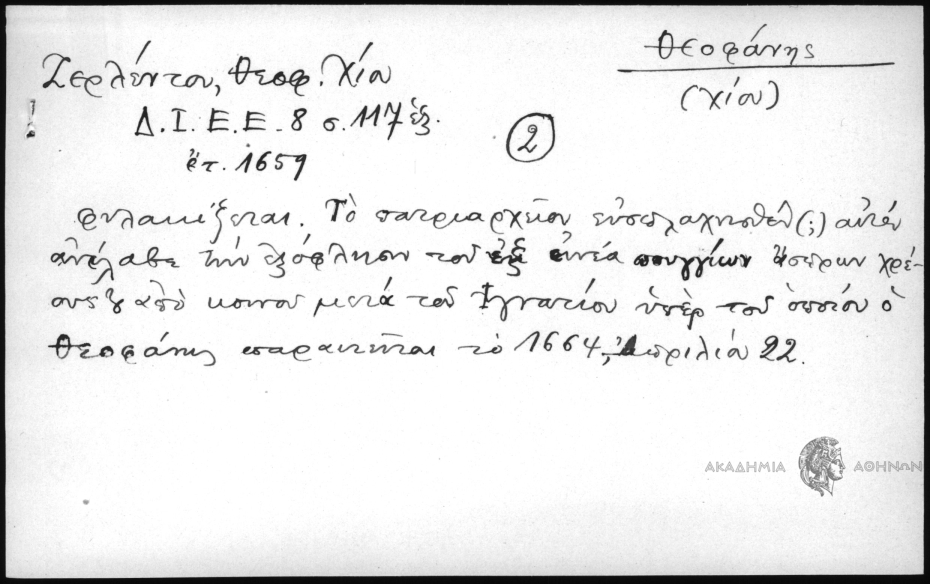 Θεοφάνης
(Χίου)
Ζερλέντου, Θεοφ. Χίου
Δ.Ι.Ε.Ε. 8 σ. 117 ἑξ.
ἐτ. 1659
2
φυλακίζεται. Τὸ πατριαρχεῖον εὐσπλαχνισθὲν (;) αὐτὸν
ἀνέλαβε τὴν ἐξόφλησιν τοῦ ἐξ ἐννέα πουγγίων ἄσπρων χρέ-
ους ἀπὸ κοινοῦ μετὰ τοῦ Ἰγνατίου ὑπὲρ τοῦ ὁποίου ὁ
Θεοφάνης παραιτεῖται τὸ 1664, Ἀπριλίου 22.
ΑΚΑΔΗΜΙΑ ΑΘΗΝΩΝ